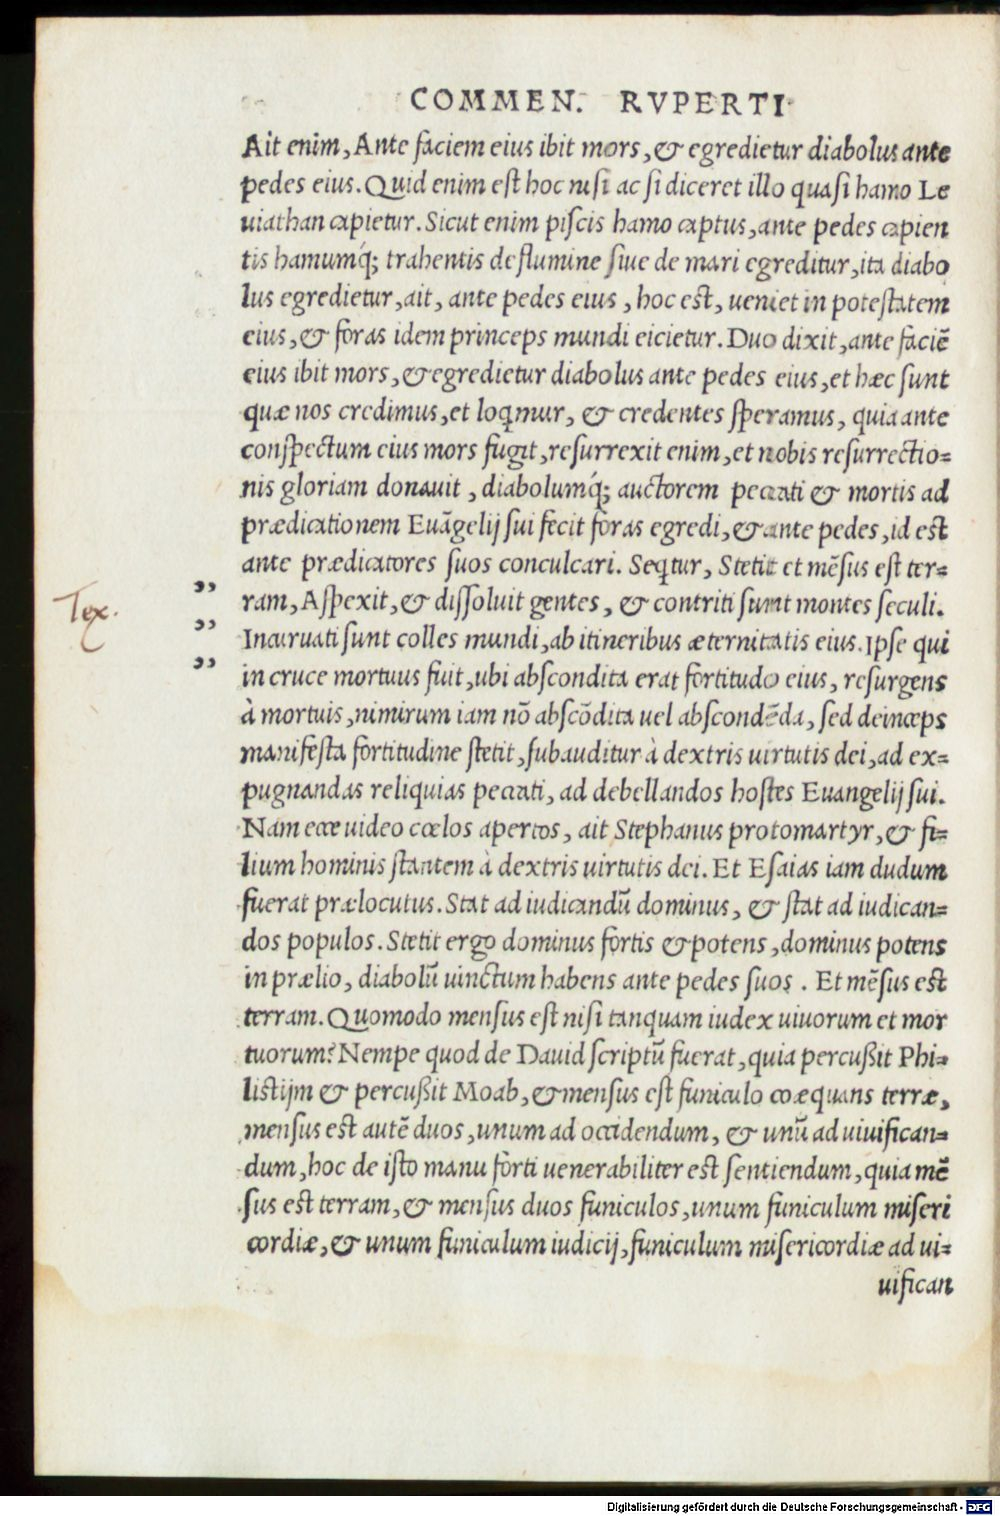 COMMEN. RVPERTI
Ait enim, Ante faciem eius ibit mors, & egredietur diabolus ante
pedes eius. Quid enim est hoc nisi ac si diceret illo quasi hamo Le
uiathan capietur. Sicut enim piscis hamo captus, ante pedes capien
tis hamumq́; trahentis de flumine siue de mari egreditur, ita diabo
lus egredietur, ait, ante pedes eius, hoc est, ueniet in potestatem
eius, & foras idem princeps mundi eicietur. Duo dixit, ante faciē
eius ibit mors, & egredietur diabolus ante pedes eius, et hæc sunt
quæ nos credimus, et loqmur, & credentes speramus, quia ante
conspectum eius mors fugit, resurrexit enim, et nobis resurrectio=
nis gloriam donauit, diabolumq́; auctorem peccati & mortis ad
prædicationem Euāgelij sui fecit foras egredi, & ante pedes, id est
ante prædicatores suos conculcari. Seqtur, Stetit et mēsus est ter=
ram, Aspexit, & dissoluit gentes, & contriti sunt montes seculi.
Tex.
Incuruati sunt colles mundi, ab itineribus æternitatis eius. Ipse qui
in cruce mortuus fuit, ubi abscondita erat fortitudo eius, resurgens
à mortuis, nimirum iam nō abscōdita uel abscondēda, sed deinceps
manifesta fortitudine stetit, subauditur à dextris uirtutis dei, ad ex=
pugnandas reliquias peccati, ad debellandos hostes Euangelij sui.
Nam ecce uideo cœlos apertos, ait Stephanus protomartyr, & fi=
lium hominis stantem à dextris uirtutis dei. Et Esaias iam dudum
fuerat prælocutus. Stat ad iudicandū dominus, & stat ad iudican=
dos populos. Stetit ergo dominus fortis & potens, dominus potens
in prælio, diabolū uinctum habens ante pedes suos. Et mēsus est
terram. Quomodo mensus est nisi tanquam iudex uiuorum et mor
tuorum? Nempe quod de Dauid scriptū fuerat, quia percußit Phi=
listijm & percußit Moab, & mensus est funiculo coæquans terræ,
mensus est autē duos, unum ad occidendum, & unū ad uiuifican=
dum, hoc de isto manu forti uenerabiliter est sentiendum, quia mē
sus est terram, & mensus duos funiculos, unum funiculum miseri
cordiæ, & unum funiculum iudicij, funiculum misericordiæ ad ui=
uifican
Digitalisierung gefördert durch die Deutsche Forschungsgemeinschaft - DFG